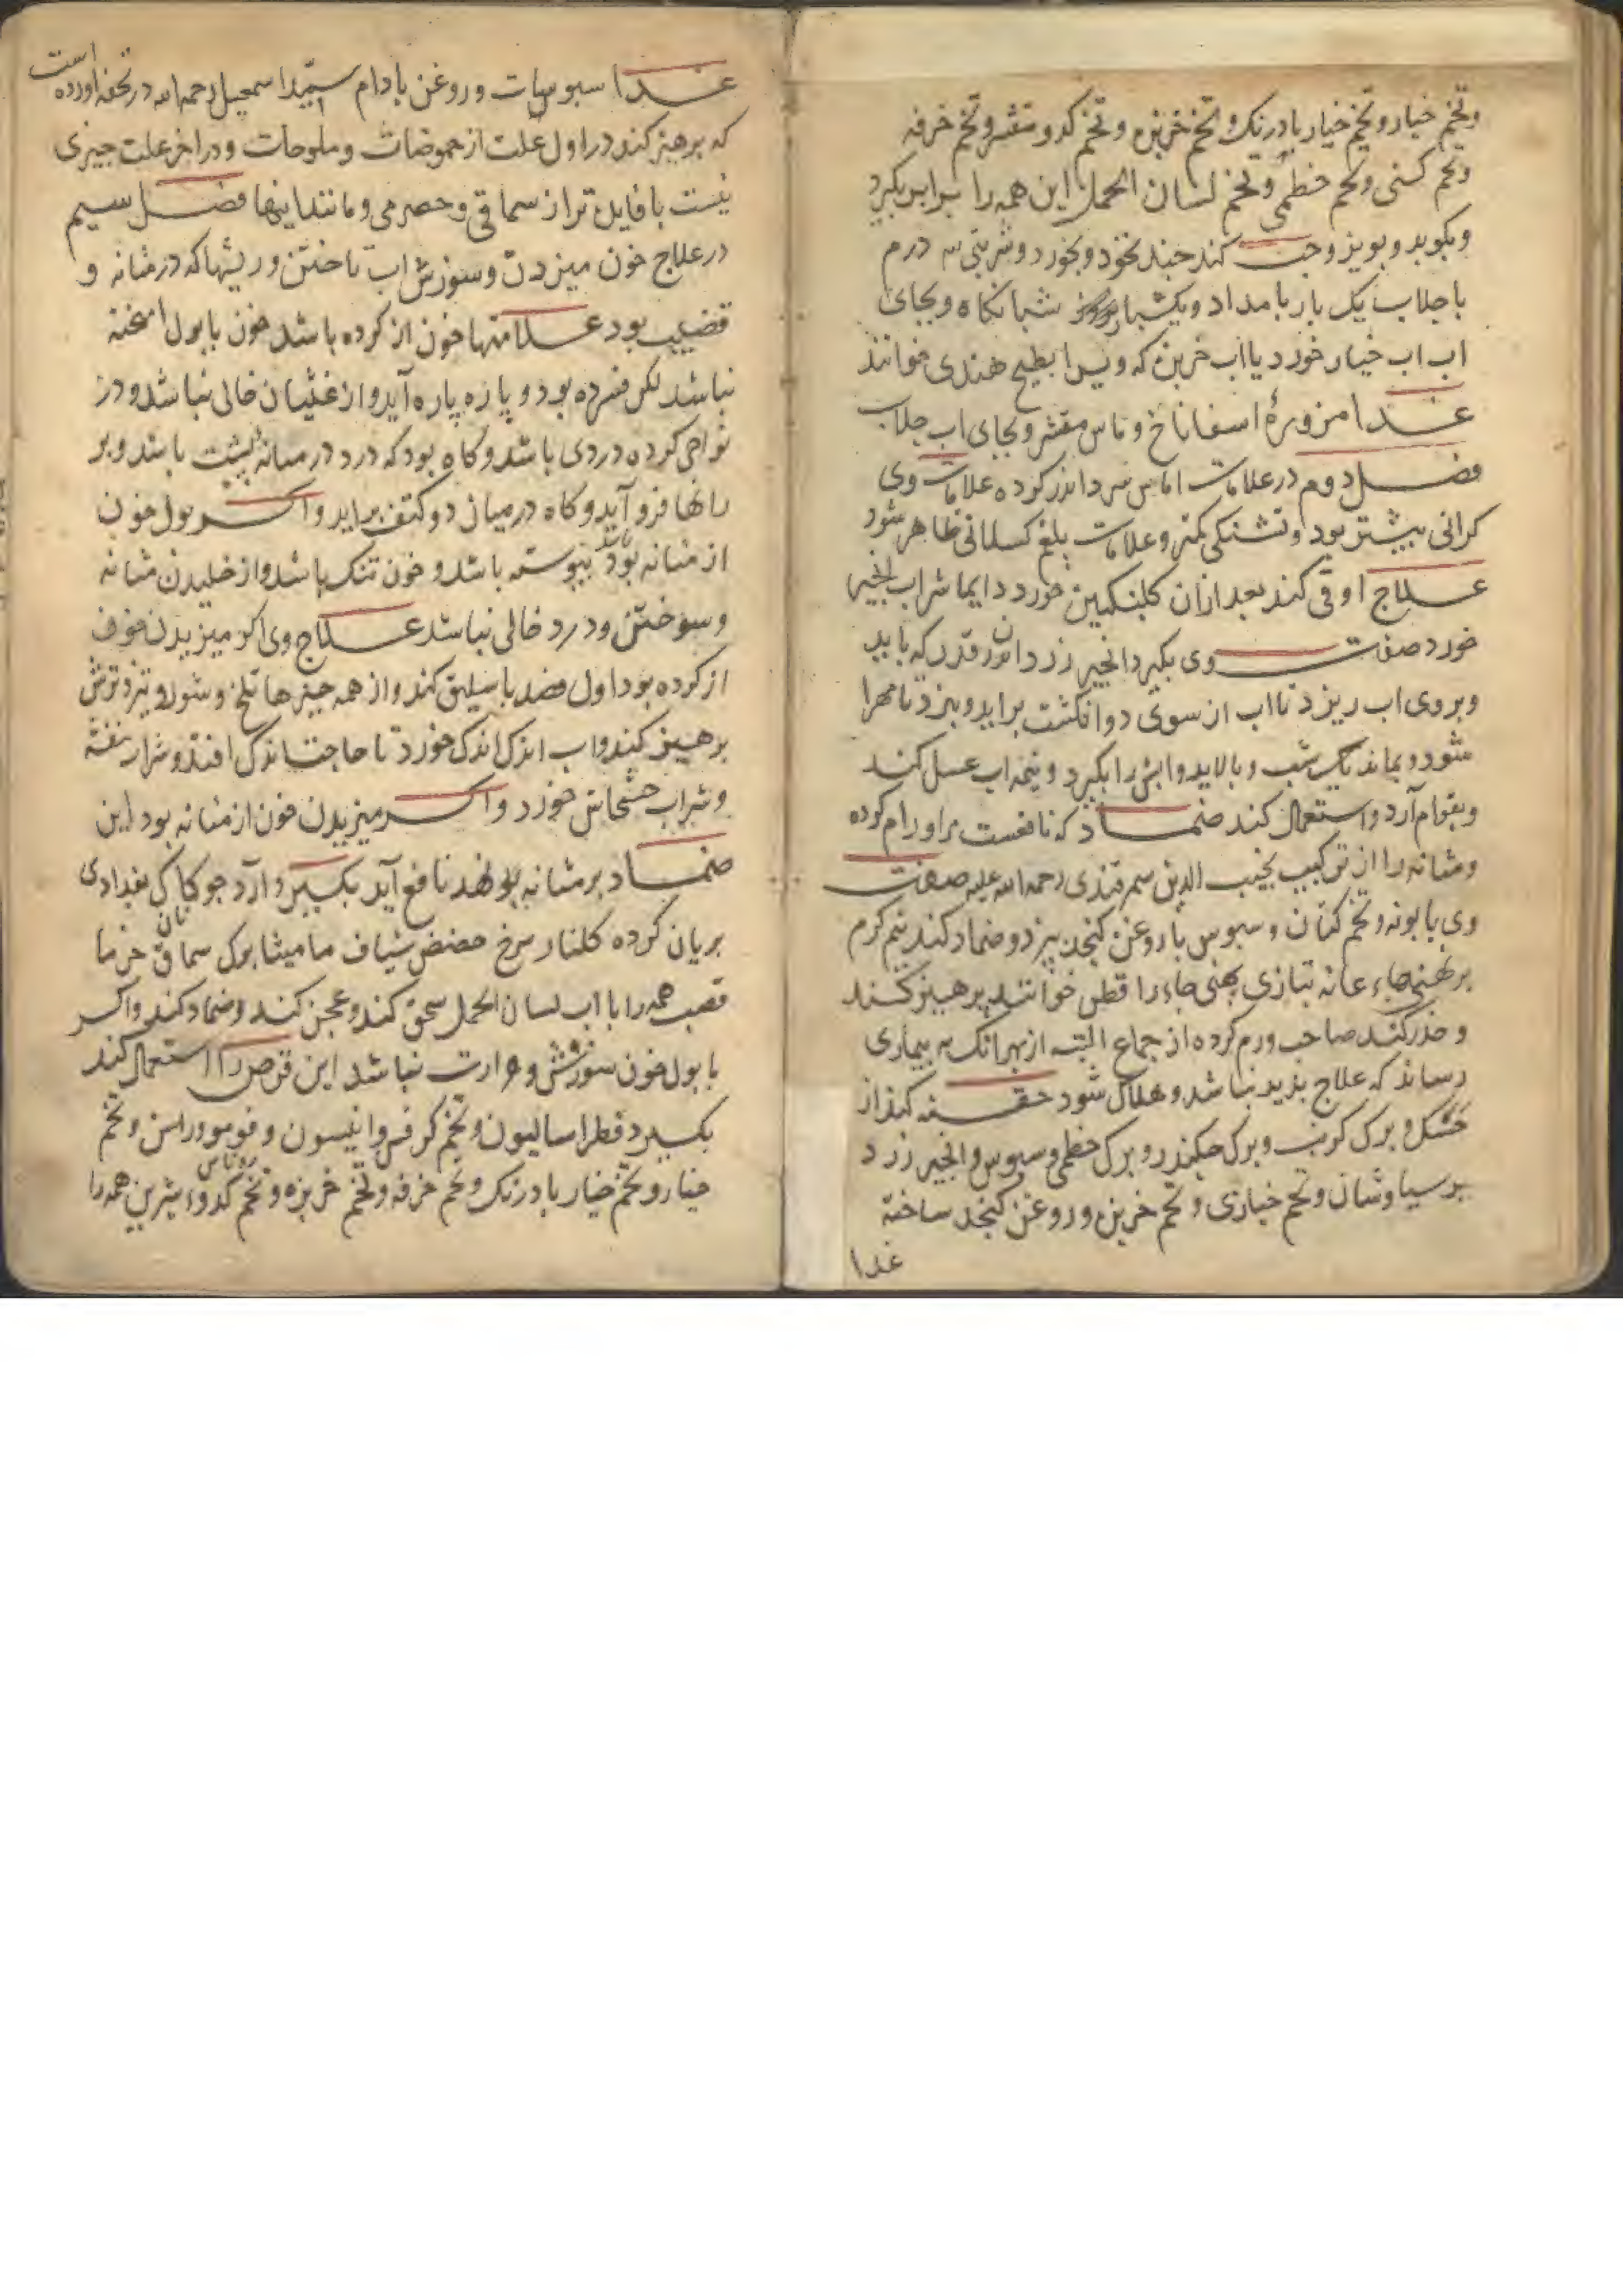 وتخم خیار وتخم خیار بادرنک وتخم خربزه وتخم کدو مقشر وتخم خرفه
وتخم کسنی وتخم خطمی وتخم لسان الحمل این همه را برابر بکیرد
وبکوبد وببیزد وحب کند چند نخود وبخورد وشربتی سه درم
با جلاب یک بار بامداد ویکبار شبانکاه وبجای
اب اب خیار خورد یا اب خربزه که ویرا بطیخ هندی خوانند
غذا مزورهٔ اسفاناخ وماس مقشر وبجای اب جلاب
فصل دوم در علامات اماس سرد اندر کرده علامات وی
کرانی بیشتر بود وتشنکی کمتر وعلامات بلغم کسلانی ظاهر شود
علاج اوقی کند بعد ازان کلنکبین خورد دایما شراب انجیر
خورد صفت وی بکیرد انجیر زرد ان قدر که باید
وبروی اب ریزد تا اب از سوی دو انکشت براید وبپزد تا مهرا
شود وبماند یک شب وبالاید وابش را بکیرد ونیمه اب عسل کند
وبقوام آرد واستعمال کند ضماد که نافعست مر اورام کرده
ومثانه را از ترکیب نجیب الدین سمرقندی رحمه الله علیه صفت
وی بابونه وتخم کتان وسبوس با روغن کنجد بپزد وضماد کند نیم کرم
بر تهنی جاء عانه بتازی تهنی جاء را قطن خوانند پرهیز کند
وحذر کند صاحب ورم کرده از جماع البته از بهر انک به بیماری
رساند که علاج پذیر نباشد وهلاک شود حقنه کند از
خشک وبرک کرنب وبرک چکندر وبرک خطمی وسبوس وانجیر زرد
پرسیاوشان وتخم خبازی وتخم خربزه وروغن کنجد ساخته
غذا
غذا سبوسات وروغن بادام سید اسمعیل رحمه الله در تحفه اورده است
که پرهیز کند در اول علت از حموضات وملوحات ودر اخر علت چیزی
نیست با فایده تر از سماقی وحصرمی ومانند اینها فصل سیم
در علاج خون میزدن وسوزش اب تاختن وریشها که در مثانه و
قضیب بود علامتها خون از کرده باشد خون با بول امیخته
نباشد لکن فسرده بود وپاره پاره آید واز غثیان خالی نباشد ودر
نواحی کرده دردی باشد وکاه بود که درد در میانه پشت باشد وبر
رانها فرو آید وکاه در میان دو کتف براید واکر بول خون
از مثانه بود پیوسته باشد وخون تنک باشد واز خلیدن مثانه
وسوختن ودرد خالی نباشد علاج وی اکر میزیدن خون
از کرده بود اول فصد باسلیق کند واز همه چیزها تلخ وشور وتیز وترش
پرهیز کند واب اندک اندک خورد تا حاجت اندک افتد وشراب بنفشه
وشراب خشخاش خورد واکر میزیدن خون از مثانه بود این
ضماد بر مثانه نهد نافع آید بکیرد آرد جو کاک بغدادی
بریان کرده کلنار سرخ حضض شیاف مامیثا سماق خرما
قصب همه را با اب لسان الحمل سحق کند وعجن کند وضماد کند واکر
با بول خون سوزش وحرارت نباشد این قرص را استعمال کند
بکیرد فطراسالیون وتخم کرفس وانیسون وفومو وراسن وتخم
خیار وتخم خیار بادرنک وتخم خرفه وتخم خربزه وتخم کدوء شیرین همه را